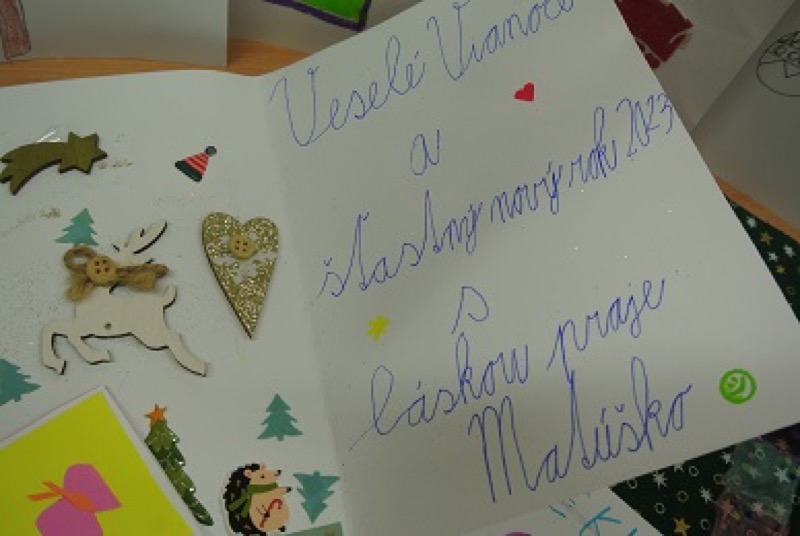 Veselé Vianoce
a
šťastný nový rok 2023
s
láskou praje
Matúško